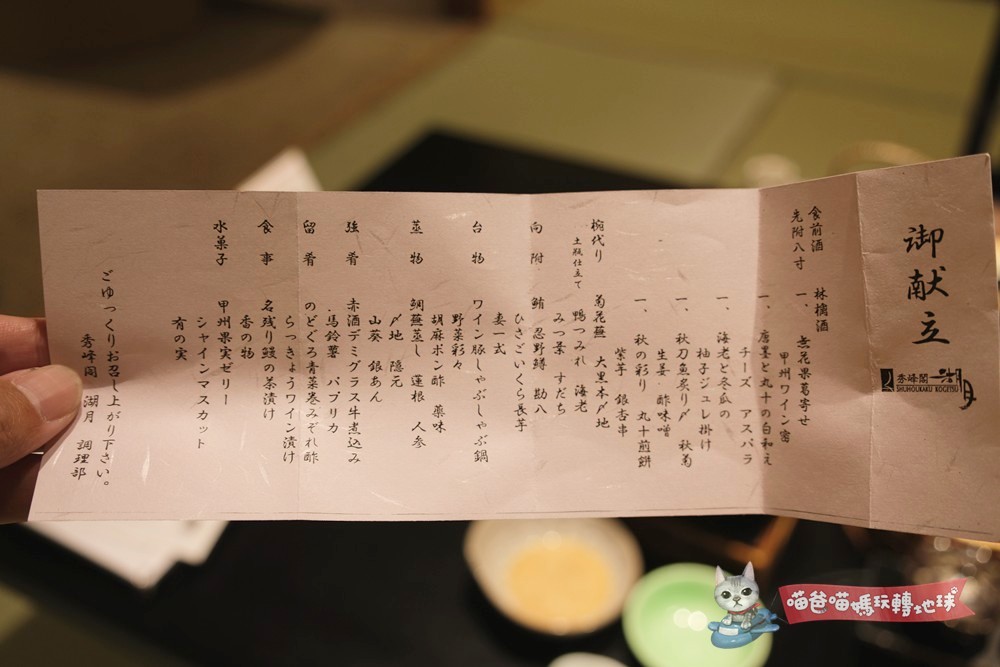 御献立
秀峰閣 湖月
SHUHOUKAKU KOGETSU
食前酒 林檎酒
先附八寸 一、無花果葛寄せ
甲州ワイン窩
一、唐墨と丸十の白和え
チーズ アスパラ
一、海老と冬瓜の
柚子ジュレ掛け
一、秋刀魚炙り〆 秋菊
生姜 酢味噌
一、秋の彩り 丸十煎餅
紫芋 銀杏串
椀代り 菊花蕪 大黒本〆地
土瓶仕立て 鴨つみれ 海老
みつ葉 すだち
向附 鮪 忍野鱒 勘八
ひさごいくら長芋
妻一式
台物 ワイン豚しゃぶしゃぶ鍋
野菜彩々
胡麻ポン酢 薬味
蒸物 鯛蕪蒸し 蓮根 人参
〆地 隠元
山葵 銀あん
強肴 赤酒デミグラス牛煮込み
馬鈴薯 パプリカ
留肴 のどぐろ青菜巻みぞれ酢
らっきょうワイン漬け
食事 名残り鰻の茶漬け
香の物
水菓子 甲州果実ゼリー
シャインマスカット
有の実
ごゆっくりお召し上がり下さい。
秀峰閣 湖月 調理部
喵爸喵媽玩轉地球